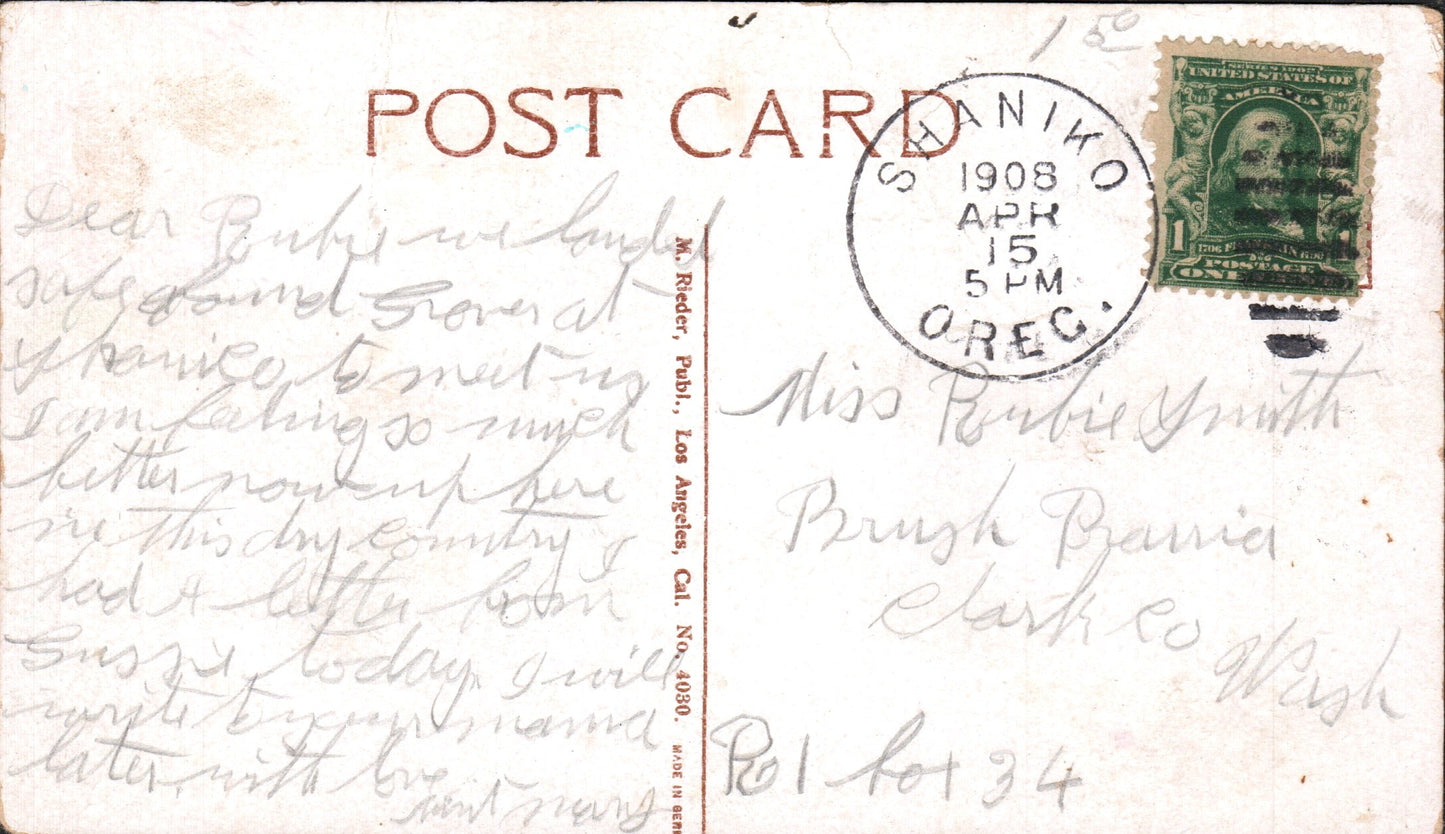 1 50
POST CARD
SHANIKO
1908
APR
15
5 PM
OREG.
SERIES 1902
UNITED STATES OF
AMERICA
1
1706 FRANKLIN 1790
1
POSTAGE
ONE
Dear Rubie we landed
safe found Grover at
Shaniko to meet us
I am feeling so much
better now up here
in this dry country I
had a letter from
Gussie today I will
write to your mama
later with love
Aunt Mary
M. Rieder, Publ., Los Angeles, Cal. No. 4030. MADE IN GER
Miss Rubie Smith
Brush Praria
Clark Co
Wash
R 1 box 34